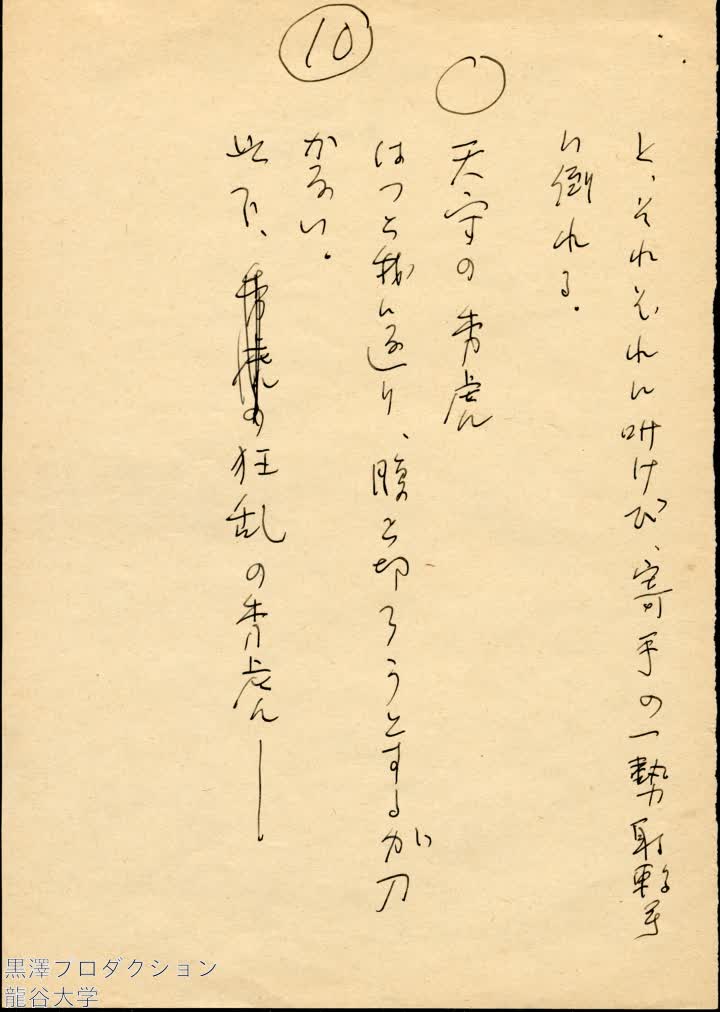 と、それぞれに叫けび、寄手の一勢射撃
に倒れる。
○
天守の秀虎
はっと我に返り、腹を切ろうとするが刀
がない。
此下、秀虎の狂乱の秀虎——
10
黒澤プロダクション
龍谷大学